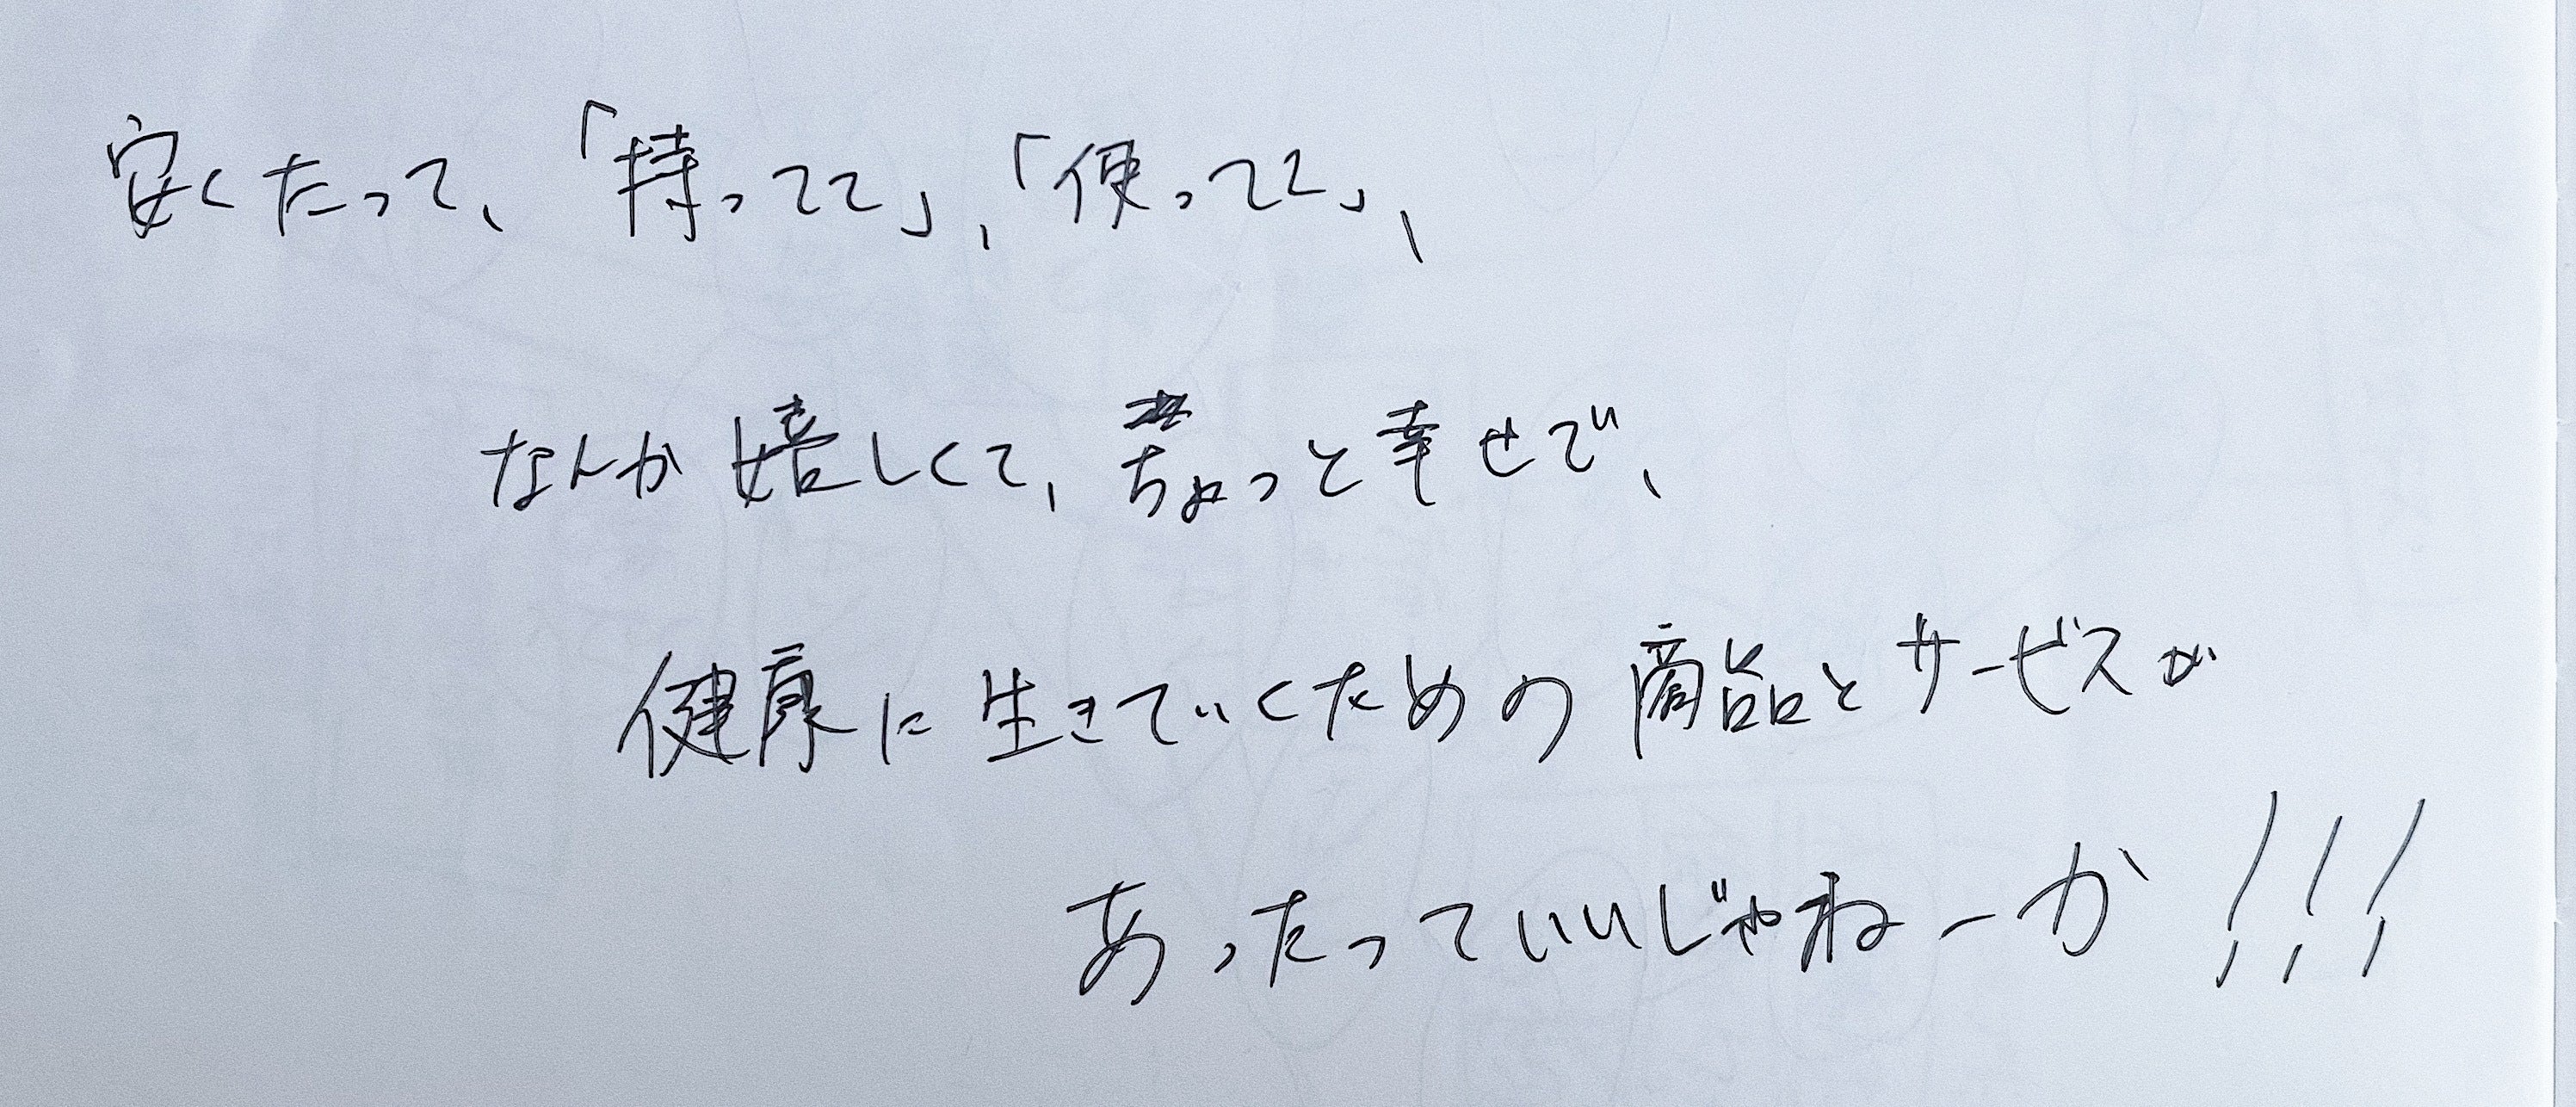 安くたって、「持ってて」、「使ってて」、
なんか嬉しくて、ちょっと幸せで、
健康に生きていくための商品とサービスが
あったっていいじゃねーか!!!